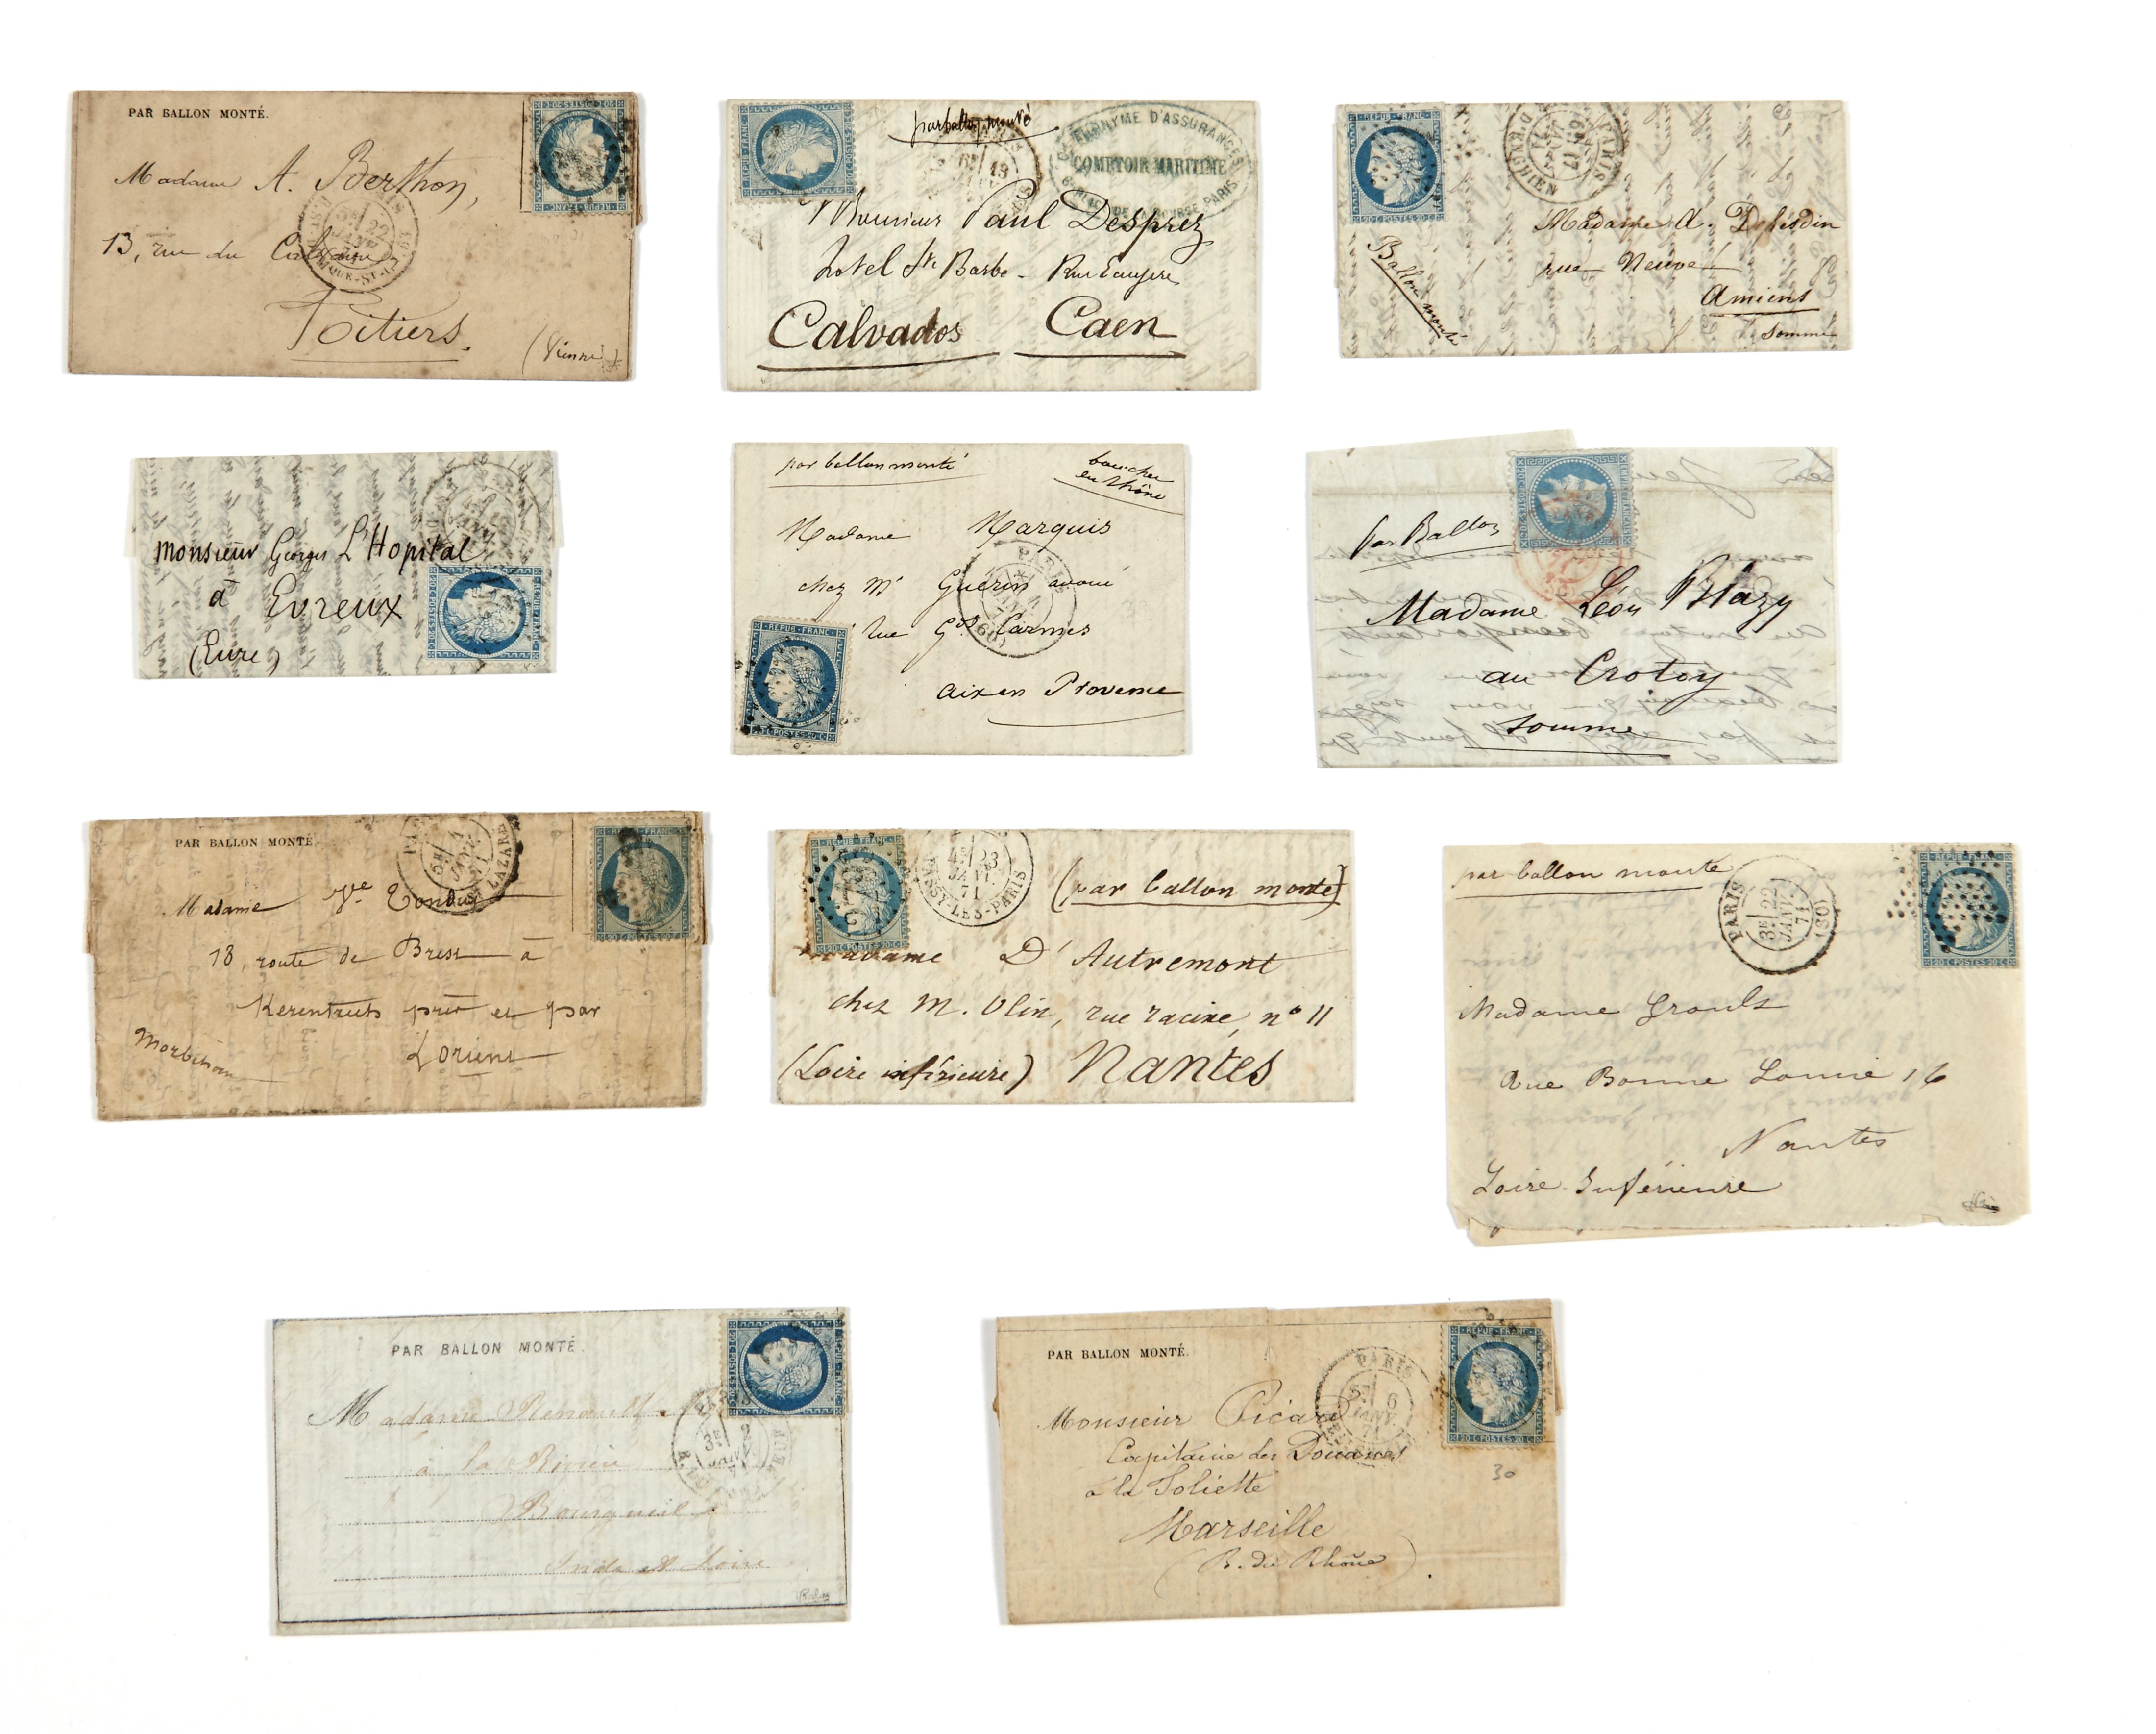 PAR BALLON MONTÉ.
Madame A. Berthon,
13, rue du Calvaire
Poitiers.
(Vienne)
par ballon monté
ANONYME D'ASSURANCES
COMPTOIR MARITIME
PARIS
Monsieur Paul Desprez
hotel Ste Barbe - Rue
Calvados Caen
REPUB FRANC
20 C POSTES 20 C
PARIS
D'ENGHIEN
Madame A.
rue Neuve
Amiens
Somme
Ballon monté
Monsieur Georges L'Hopital
à Evreux
(Eure)
par ballon monté
bouches
du Rhône
Madame Marquis
chez Mr Guérin avoué
rue Gds Carmes
Aix en Provence
REPUB FRANC
PARIS
JANV.
(60)
par Ballon
Madame Léon Blazy
au Crotoy
Somme
PAR BALLON MONTÉ.
Madame Vve Tondu
18, route de Brest à
Kerentrech près et par
Lorient
Morbihan
REPUB FRANC
REPUB FRANC
20 C POSTES 20 C
4E 23
JANV.
71
PASSY-LES-PARIS
(par ballon monté)
Madame D'Autremont
chez M. Olin, rue racine, n° 11
(Loire inférieure) Nantes
par ballon monté
PARIS
3E 22
JANV.
71
(30)
REPUB FRANC
20 C POSTES 20 C
Madame Grault
Rue Bonne Louise 16
Nantes
Loire-Inférieure
PAR BALLON MONTÉ.
Madame Renault
à la Rivière
Bourgueil
Indre et Loire
3E 2
JANV.
PAR BALLON MONTÉ.
PARIS
5E 6
JANV.
REPUB FRANC
20 C POSTES 20 C
Monsieur Picard
Capitaine des Douanes
à la Joliette
Marseille
(B. du Rhône)
30